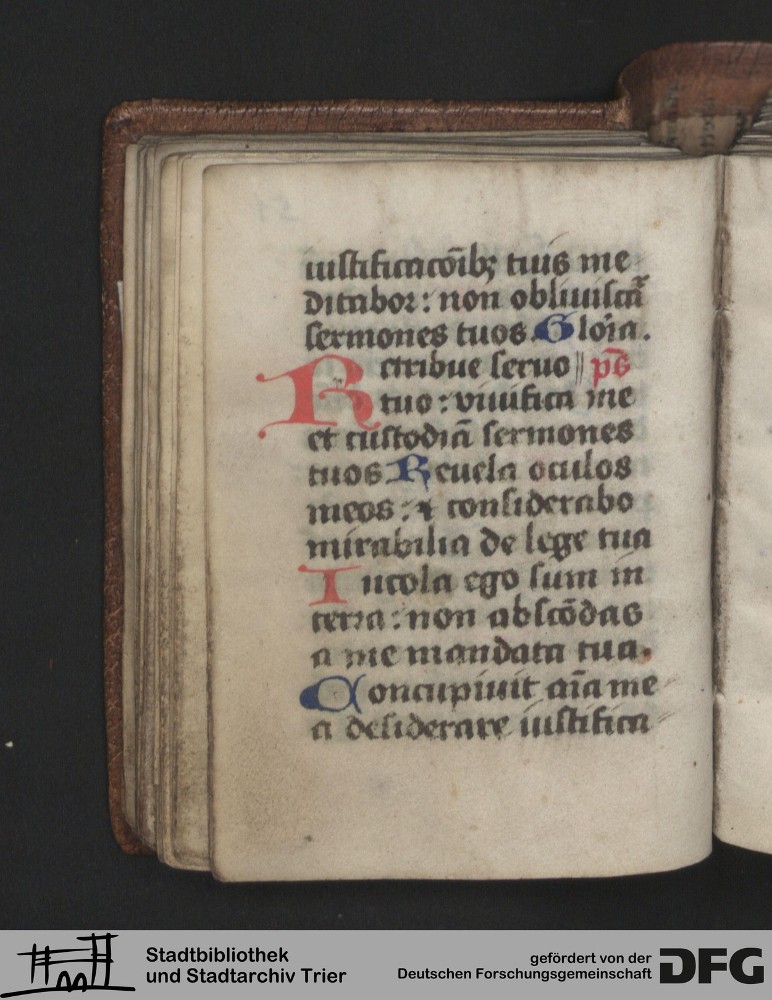 iustificacōibꝫ tuis me
ditabor : non obliuiscā
sermones tuos. Gloīa.
Retribue seruo || pS
tuo : viuifica me
et custodiā sermones
tuos Reuela oculos
meos : ⁊ considerabo
mirabilia de lege tua
Incola ego sum in
terra : non abscōdas
a me mandata tua.
Concupiuit aīa me
a desiderare iustifica
Stadtbibliothek
und Stadtarchiv Trier
gefördert von der
Deutschen Forschungsgemeinschaft
DFG